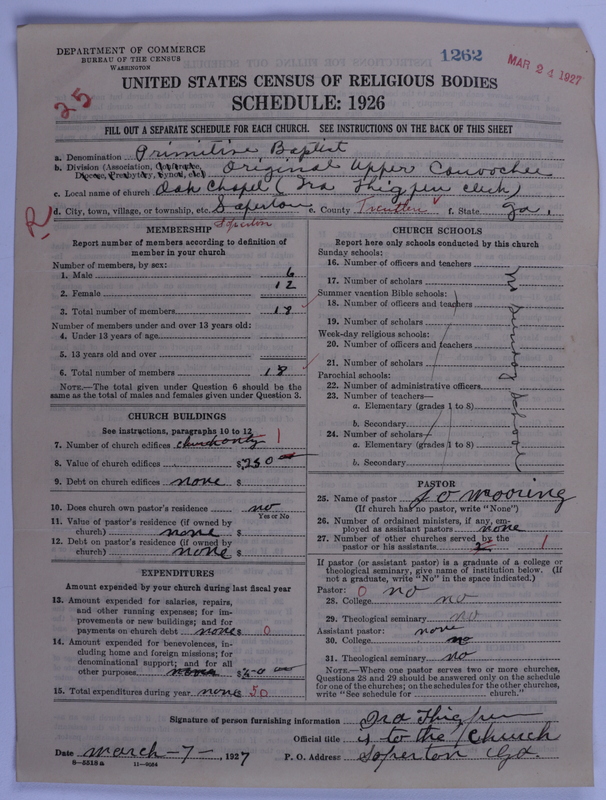 DEPARTMENT OF COMMERCE
BUREAU OF THE CENSUS
WASHINGTON
1262
MAR 24 1927
UNITED STATES CENSUS OF RELIGIOUS BODIES
SCHEDULE: 1926
25
FILL OUT A SEPARATE SCHEDULE FOR EACH CHURCH. SEE INSTRUCTIONS ON THE BACK OF THIS SHEET
a. Denomination Primitive Baptist
b. Division (Association, Conference, Diocese, Presbytery, Synod, etc.) Original Upper Canoochee
c. Local name of church Oak Chapel (Ira Thigpen clerk)
d. City, town, village, or township, etc. Soperton e. County Treutlen f. State Ga.
R
Soperton
MEMBERSHIP
Report number of members according to definition of member in your church
Number of members, by sex:
1. Male 6
2. Female 12
3. Total number of members 18
Number of members under and over 13 years old:
4. Under 13 years of age
5. 13 years old and over
6. Total number of members 18
NOTE.—The total given under Question 6 should be the same as the total of males and females given under Question 3.
CHURCH BUILDINGS
See instructions, paragraphs 10 to 12
7. Number of church edifices church only 1
8. Value of church edifices $250 00
9. Debt on church edifices none $
10. Does church own pastor's residence no
Yes or No
11. Value of pastor's residence (if owned by church) none $
12. Debt on pastor's residence (if owned by church) none $
EXPENDITURES
Amount expended by your church during last fiscal year
13. Amount expended for salaries, repairs, and other running expenses; for improvements or new buildings; and for payments on church debt none $ 0
14. Amount expended for benevolences, including home and foreign missions; for denominational support; and for all other purposes none $
15. Total expenditures during year none $ 50
CHURCH SCHOOLS
Report here only schools conducted by this church
Sunday schools:
16. Number of officers and teachers
17. Number of scholars
Summer vacation Bible schools:
18. Number of officers and teachers
19. Number of scholars
Week-day religious schools:
20. Number of officers and teachers
21. Number of scholars
Parochial schools:
22. Number of administrative officers
23. Number of teachers—
a. Elementary (grades 1 to 8)
b. Secondary
24. Number of scholars—
a. Elementary (grades 1 to 8)
b. Secondary
no Sunday School
PASTOR
25. Name of pastor J O Mooring
(If church has no pastor, write "None")
26. Number of ordained ministers, if any, employed as assistant pastors none
27. Number of other churches served by the pastor or his assistants 2 1
If pastor (or assistant pastor) is a graduate of a college or theological seminary, give name of institution below. (If not a graduate, write "No" in the space indicated.)
Pastor: 0 no
28. College no
29. Theological seminary no
Assistant pastor: none
30. College no
31. Theological seminary no
NOTE.—Where one pastor serves two or more churches, Questions 28 and 29 should be answered only on the schedule for one of the churches; on the schedules for the other churches, write "See schedule for church."
Signature of person furnishing information Ira Thigpen
Official title is to the Church
Date March - 7 -, 1927 P. O. Address Soperton Ga.
8-5518a 11-9084